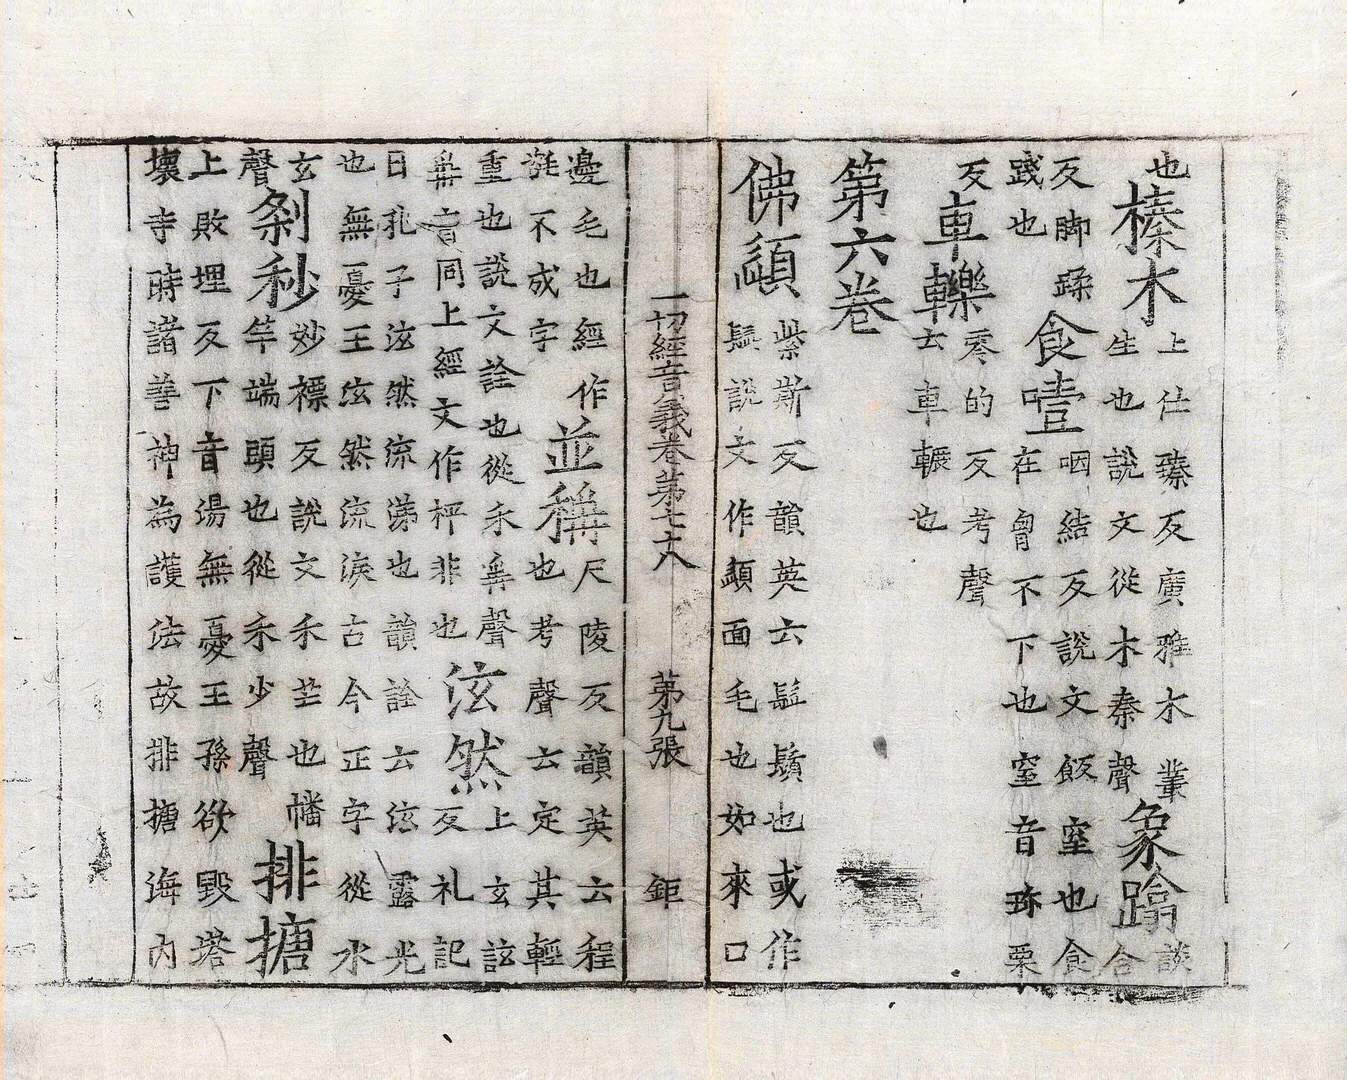 也榛木上仕臻反廣雅木藂生也說文從木秦聲象蹹談合
反脚蹂踐也食噎咽結反說文飯窒也食在胷不下也窒音珎栗
反車轢零的反考聲云車輾也
第六卷
佛頿紫斯反韻英云髭鬚也或作髭說文作頿面毛也如來口
一切經音義卷第七十八 第九張 鉅
邊毛也經作髭不成字並稱尺陵反韻英云程也考聲云定其輕
重也說文詮也從禾爯聲爯音同上經文作枰非也泫然上玄詃反礼記
曰孔子泫然流涕也韻詮云泫露光也無憂王泫然流淚古今正字從水
玄聲剎秒妙褾反說文禾芒也幡竿端頭也從禾少聲排搪
上敗埋反下音湯無憂王孫欲毀塔壞寺時諸善神為護法故排搪海內